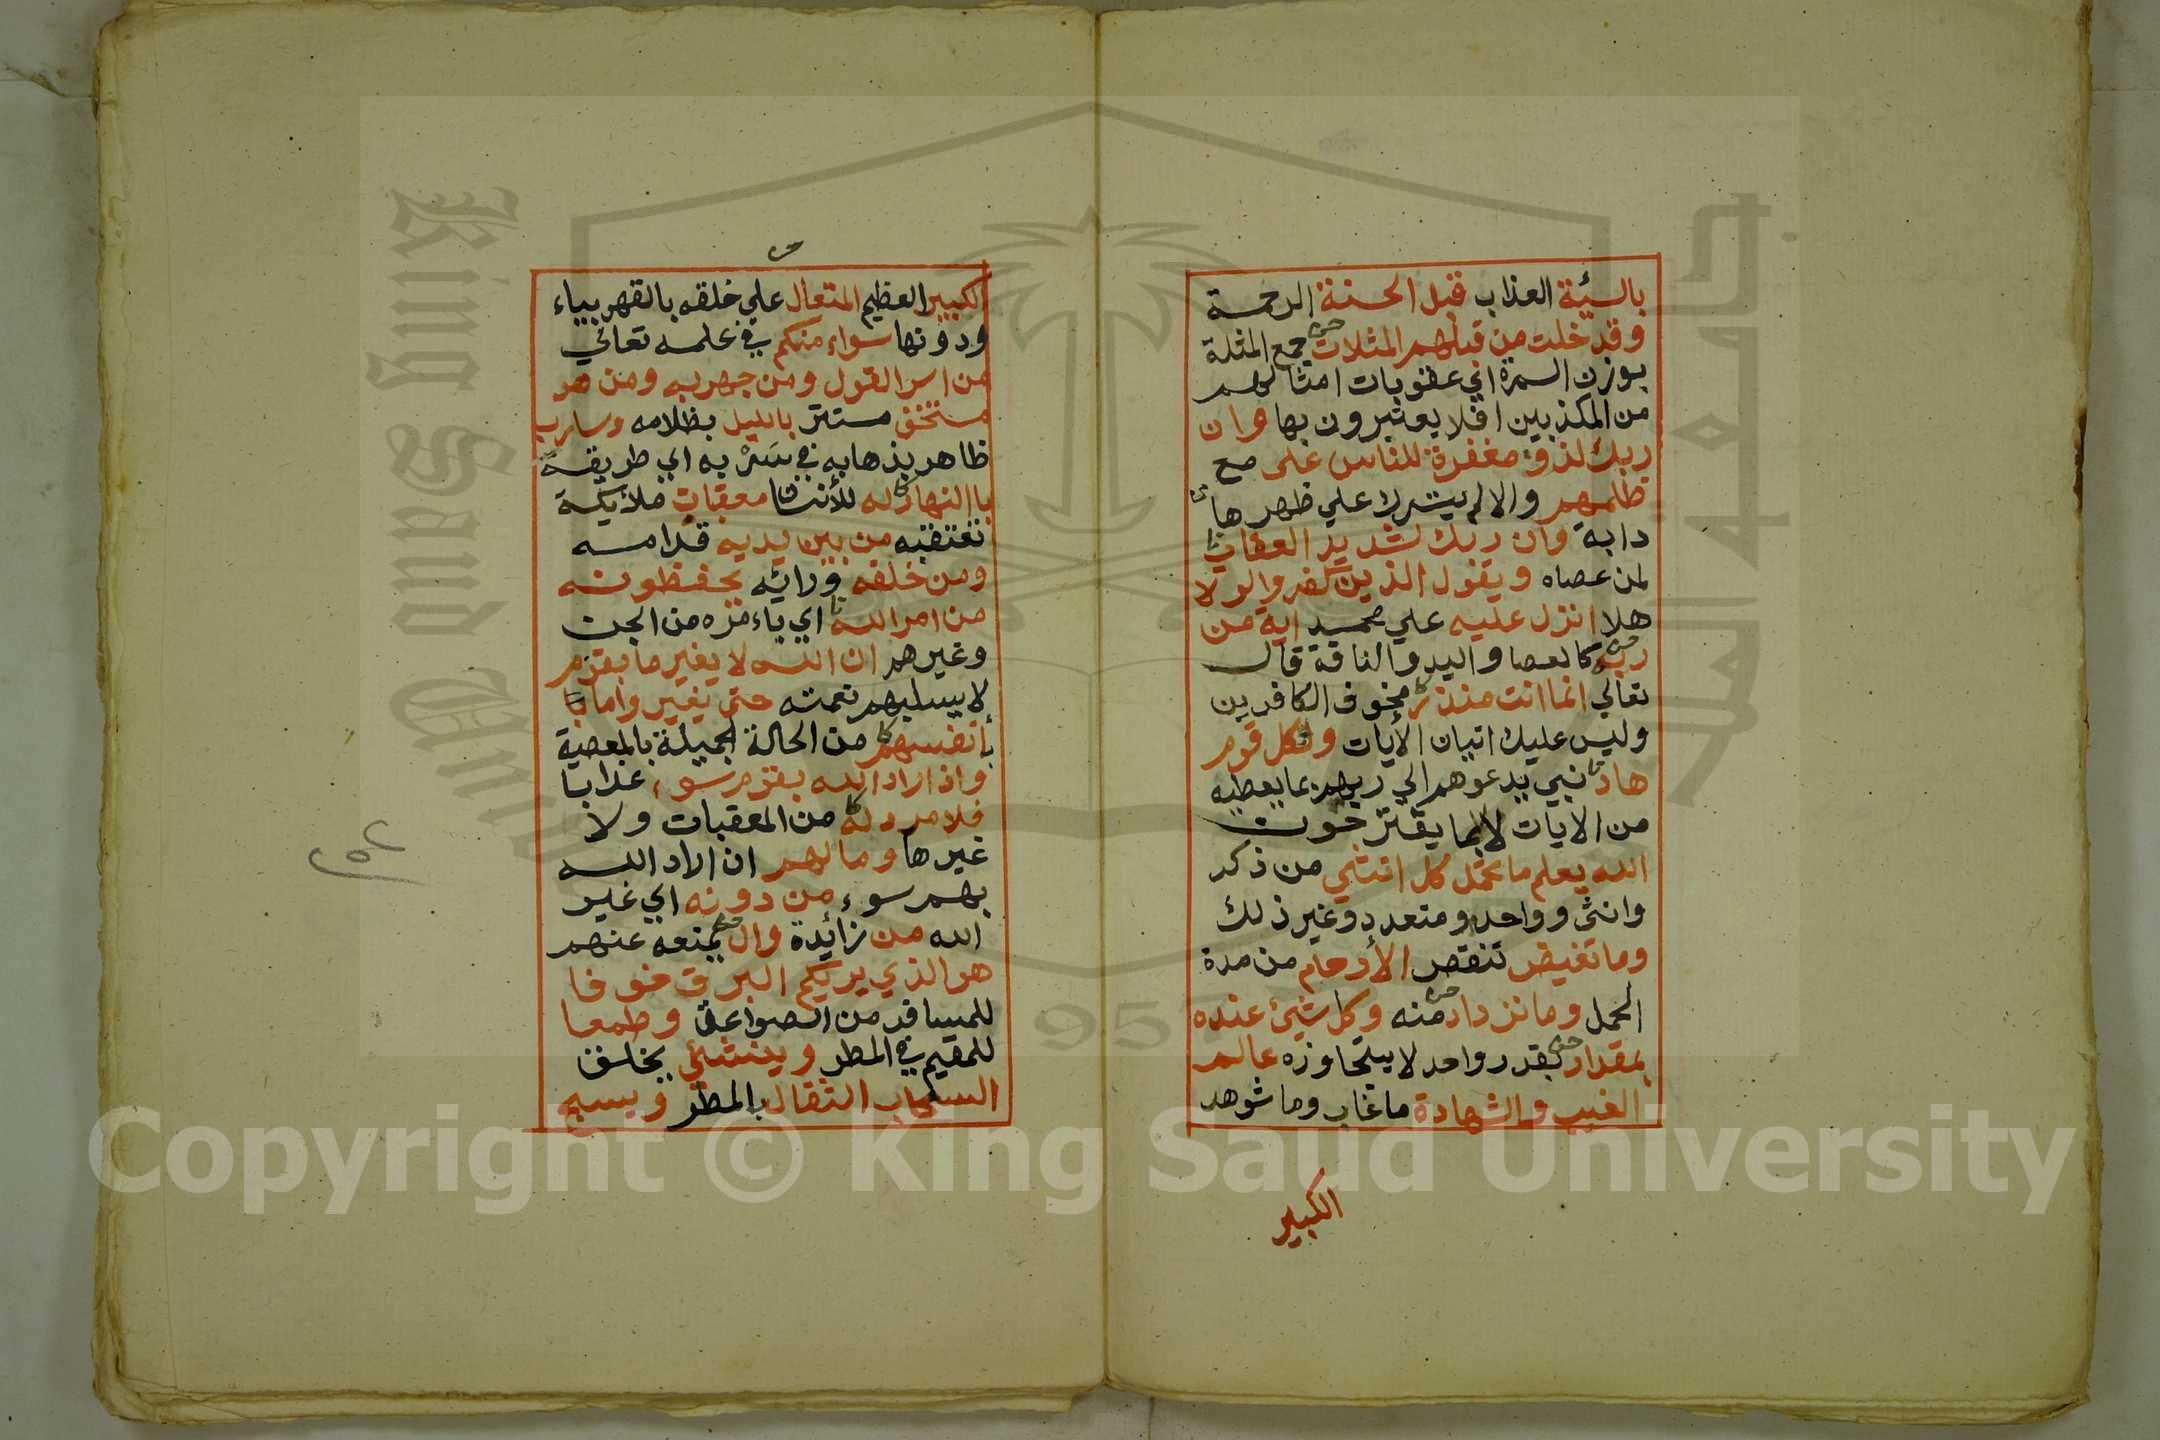 بالسئية العذاب قبل الحسنة الرحمة
وقد خلت من قبلهم المثلات جمع المثلة
بوزن السمرة اي عقوبات امثالهم
من المكذبين افلا يعتبرون بها وان
ربك لذو مغفرة للناس على مع
ظلمهم والا لم يترك علي ظهرها
دابة وان ربك لشديد العقاب
لمن عصاه ويقول الذين كفروا لولا
هلا انزل عليه علي محمد اية من
ربه كالعصا واليد والناقة قال
تعالي انما انت منذر مخوف الكافرين
وليس عليك اتيان الأيات ولكل قوم
هاد نبي يدعوهم الي ربهم بما يعطيه
من الايات لا بما يقترحون
الله يعلم ما تحمل كل انثي من ذكر
وانثى وواحد ومتعدد وغير ذلك
وما تغيض تنقص الأرحام من مدة
الحمل وما تزداد منه وكل شيئ عنده
بمقدار بقدر واحد لا يتجاوزه عالم
الغيب والشهادة ماغاب وما شوهد
الكبير
الكبير العظيم المتعال علي خلقه بالقهر بياء
ودونها سواء منكم في علمه تعالي
من اسر القول ومن جهر به ومن هو
مستخف مستتر بالليل بظلامه وسارب
ظاهر بذهابه في سربه اي طريقة
باالنهار له للأنسا معقبات ملأيكة
تعتقبه من بين يديه قدامه
ومن خلفه ورائه يحفظونه
من امر الله اي باء مره من الجن
وغيرهم ان الله لا يغير ما بقوم
لا يسلبهم نعمته حتى يغيروا ما با
بأنفسهم من الحالة الجميلة بالمعصية
واذا اراد الله بقوم سوء عذابا
فلا مرد له من المعقبات ولا
غيرها وما لهم ان اراد الله
بهم سوء من دونه اي غير
الله من زأيدة وال يمنعه عنهم
هو الذي يريكم البرق خوفا
للمسافر من الصواعق وطمعا
للمقيم في المطر وينشئ يخلق
السحاب الثقال بالمطر ويسبح
Copyright © King Saud University
King Saud University
جامعة الملك سعود
1957